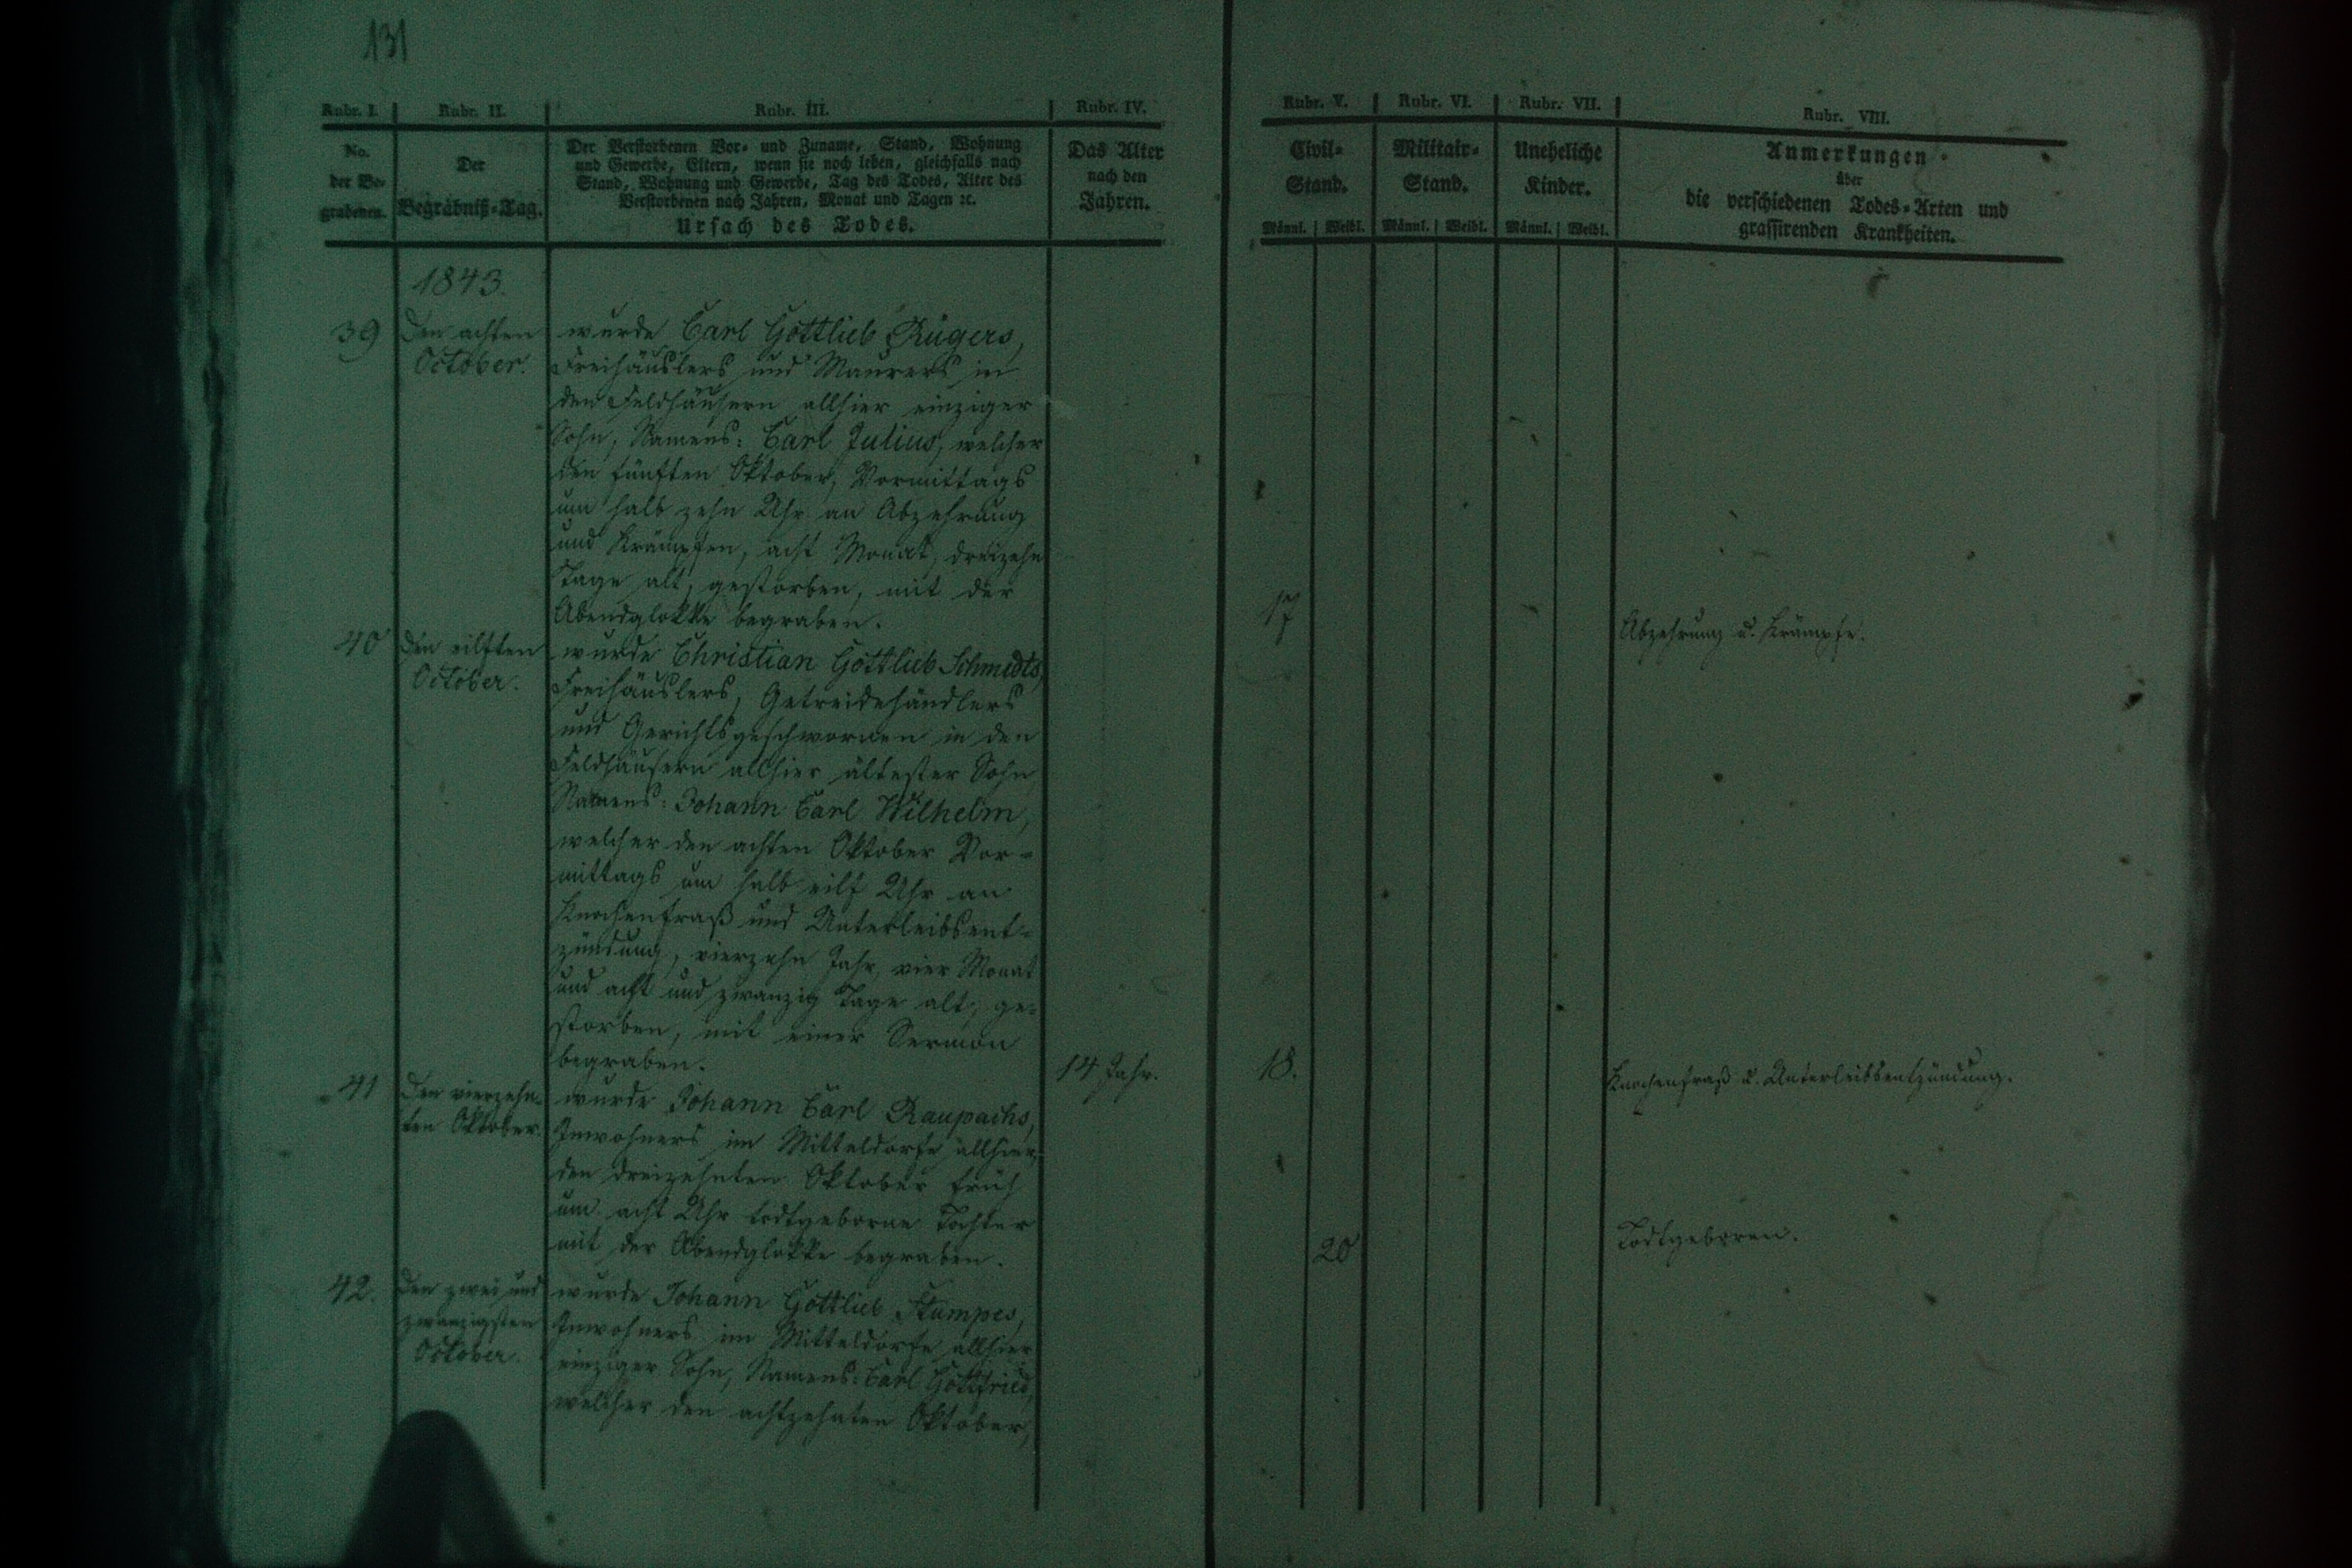 131
Rubr. I.
Rubr. II.
Rubr. III.
Rubr. IV.
No.
der Be-
grabenen.
Der
Begräbniß-Tag.
Der Verstorbenen Vor- und Zuname, Stand, Wohnung
und Gewerbe, Eltern, wenn sie noch leben, gleichfalls nach
Stand, Wohnung und Gewerbe, Tag des Todes, Alter des
Verstorbenen nach Jahren, Monat und Tagen ꝛc.
Ursach des Todes.
Das Alter
nach den
Jahren.
1843.
39
Den achten
October.
wurde Carl Gottlieb Rügers,
Freihäuslers und Maurers in
den Feldhäusern allhier einziger
Sohn, Namens: Carl Julius, welcher
den fünften Oktober, Vormittags
um halb zehn Uhr an Abzehrung
und Krämpfen, acht Monat, dreizehn
Tage alt, gestorben, mit der
Abendglokke begraben.
40
Den eilften
October.
wurde Christian Gottlieb Schmidts,
Freihäuslers, Getreidehändlers
und Gerichtsgeschwornen in den
Feldhäusern allhier ältester Sohn
Namens: Johann Carl Wilhelm,
welcher den achten Oktober Vor-
mittags um halb eilf Uhr an
Knochenfraß und Unterleibsent-
zündung, vierzehn Jahr, vier Monat
und acht und zwanzig Tage alt, ge-
storben, mit einer Sermon
begraben.
14 Jahr.
41
Den vierzehn-
ten Oktober.
wurde Johann Carl Raupachs,
Inwohners im Mitteldorfe allhier,
den dreizehnten Oktober früh
um acht Uhr todtgeborne Tochter
mit der Abendglokke begraben.
42.
Den zwei und
zwanzigsten
October.
wurde Johann Gottlieb Stumpes,
Inwohners im Mitteldorfe allhier
einziger Sohn, Namens: Carl Gottfried,
welcher den achtzehnten Oktober,
Rubr. V.
Rubr. VI.
Rubr. VII.
Rubr. VIII.
Civil-
Stand.
Militair-
Stand.
Uneheliche
Kinder.
Anmerkungen
über
die verschiedenen Todes-Arten und
grassirenden Krankheiten.
Männl. Weibl. Männl. Weibl. Männl. Weibl.
17
Abzehrung u. Krämpfe.
18.
Knochenfraß u. Unterleibsentzündung.
20
Todtgeboren.